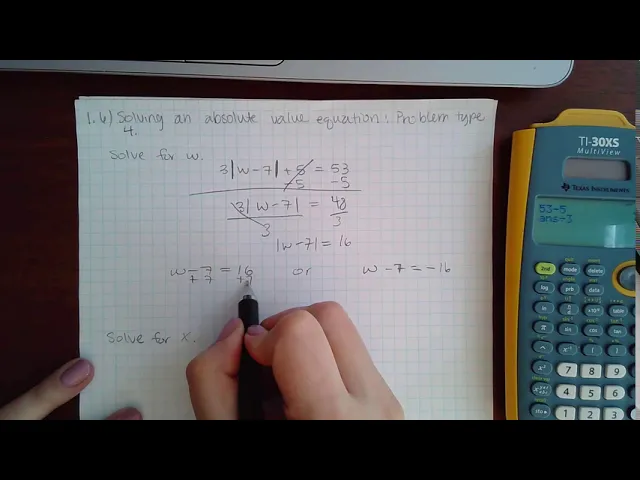 1.6) Solving an absolute value equation: Problem type
4.
Solve for w.
3|w-7| + 5 = 53
-5 -5
3|w-7| = 48
3 3
|w-7| = 16
w-7 = 16 or w-7 = -16
+7 +7
Solve for X.
TI-30XS
MultiView
TEXAS INSTRUMENTS
53-5
ans÷3
2nd
7 8 9
4 5 6
1 2 3